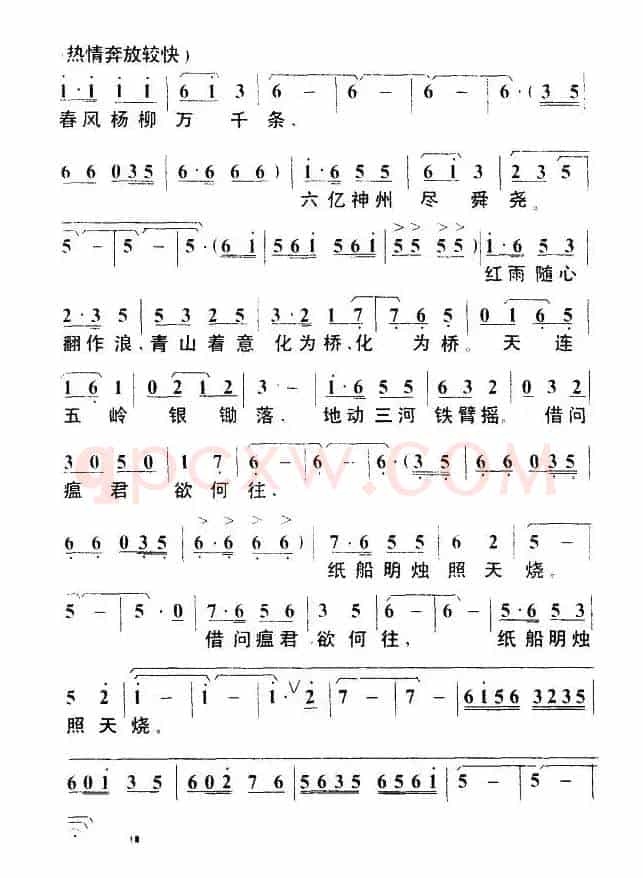 热情奔放较快）
i·i i i | 6 i 3 | 6 － | 6 － | 6 － | 6·（3 5
春风杨柳万 千条、
6 6 0 3 5 | 6·6 6 6）| i·6 5 5 | 6 i 3 | 2 3 5
六亿神州 尽 舜 尧。
5 － | 5 － | 5·（6 i | 5 6 i 5 6 i | 5 5 5 5）| i·6 5 3
红雨随心
2·3 5 | 5 3 2 5 | 3·2 1 7 | 7 6 5 | 0 1 6 5
翻作浪、青山着意 化为桥、化 为桥。天 连
1 6 1 | 0 2 1 2 | 3 － | i·6 5 5 | 6 3 2 | 0 3 2
五 岭 银 锄落、地动三河 铁臂摇。借问
3 0 5 0 | 1 7 | 6 － | 6 － | 6·（3 5 | 6 6 0 3 5
瘟 君 欲何往、
qpcxw.COM
6 6 0 3 5 | 6·6 6 6）| 7·6 5 5 | 6 2 | 5 －
纸船明烛 照天烧。
5 － | 5·0 | 7·6 5 6 | 3 5 | 6 － | 6 － | 5·6 5 3
借问瘟君 欲何往， 纸船明烛
5 2 | i － | i － | i·V 2 | 7 － | 7 － | 6 i 5 6 3 2 3 5
照天烧。
6 0 i 3 5 | 6 0 2 7 6 | 5 6 3 5 6 5 6 i | 5 － | 5 －